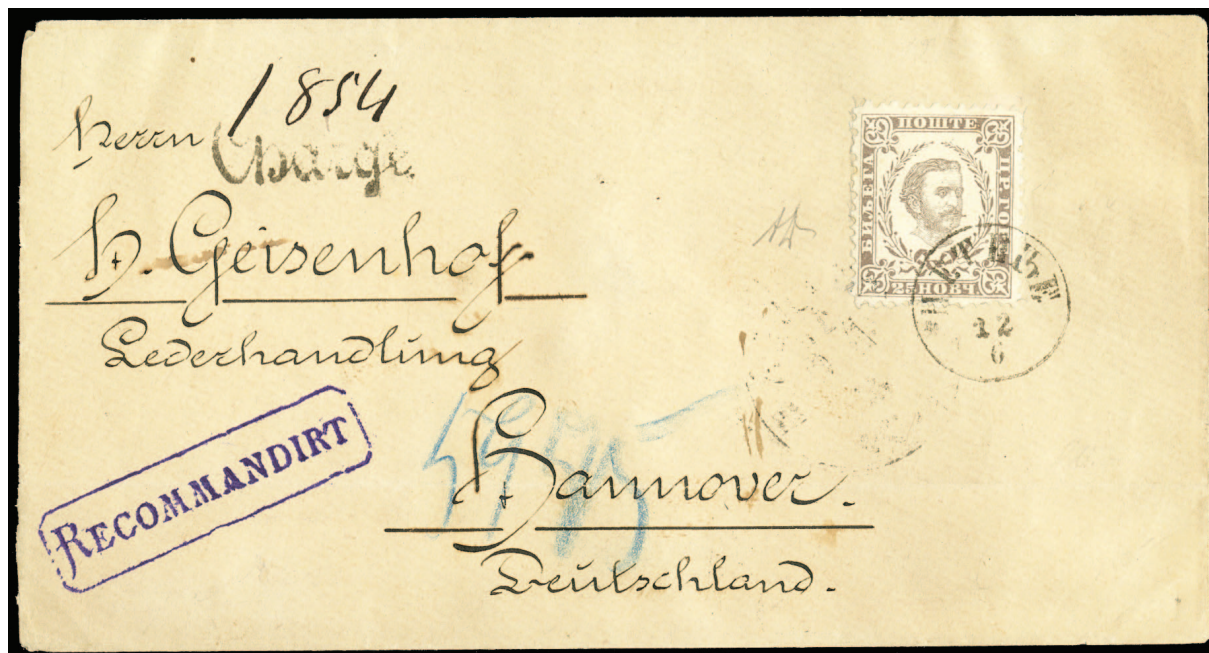 1854
Herrn
Chargé.
H. Geisenhof
Lederhandlung
RECOMMANDIRT
Hannover.
Deutschland.
ПОШТЕ
БИЉЕГА
ЦР.ГОРЕ
25 НОВЧ
ЦЕТИЊЕ
12
6